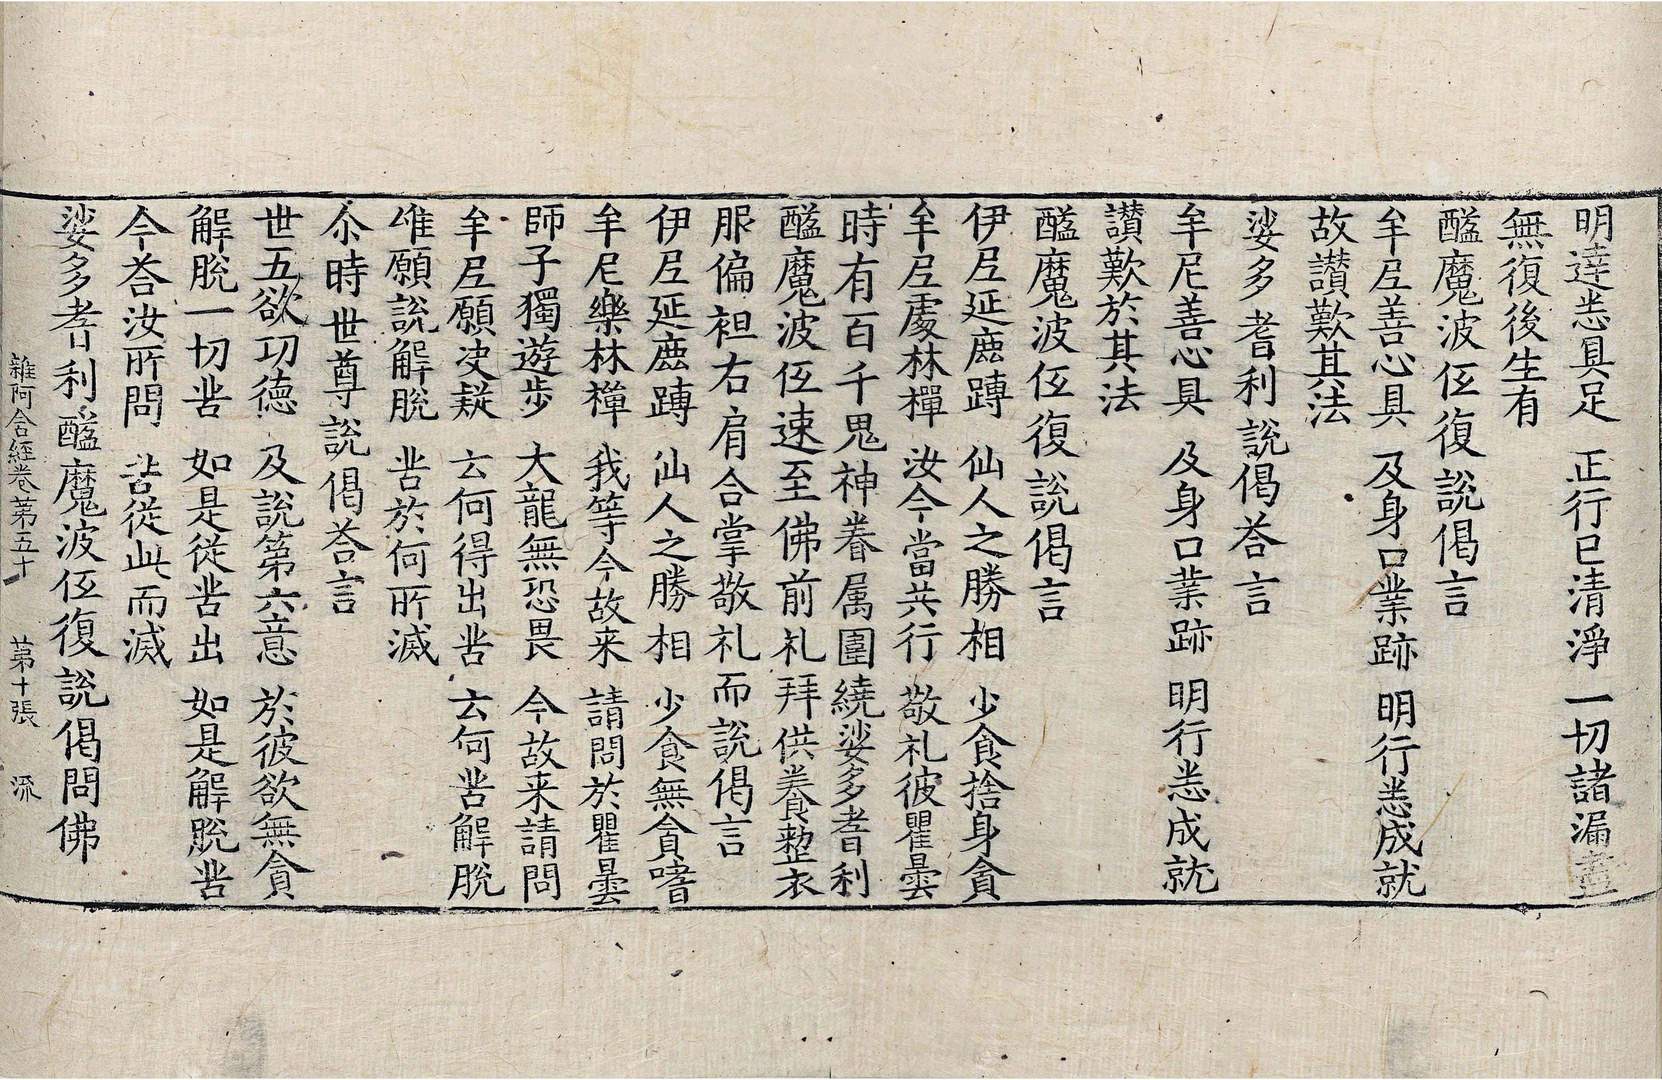 明達悉具足　正行已清淨　一切諸漏盡
無復後生有
醯魔波低復說偈言
牟尼善心具　及身口業跡　明行悉成就
故讃歎其法
娑多耆利說偈荅言
牟尼善心具　及身口業跡　明行悉成就
讃歎於其法
醯魔波低復說偈言
伊尼延鹿䏝　仙人之勝相　少食捨身貪
牟尼處林禪　汝今當共行　敬礼彼瞿曇
時有百千鬼神眷属圍繞娑多耆利
醯魔波低速至佛前礼拜供養整衣
服偏袒右肩合掌敬礼而說偈言
伊尼延鹿䏝　仙人之勝相　少食無貪嗜
牟尼樂林禪　我等今故来　請問於瞿曇
師子獨遊步　大龍無恐畏　今故来請問
牟尼願决疑　云何得出苦　云何苦解脫
唯願說解脫　苦於何所滅
尒時世尊說偈荅言
世五欲功德　及說第六意　於彼欲無貪
解脫一切苦　如是從苦出　如是解脫苦
今荅汝所問　苦從此而滅
娑多耆利醯魔波低復說偈問佛
雜阿含經卷第五十　第十張　流